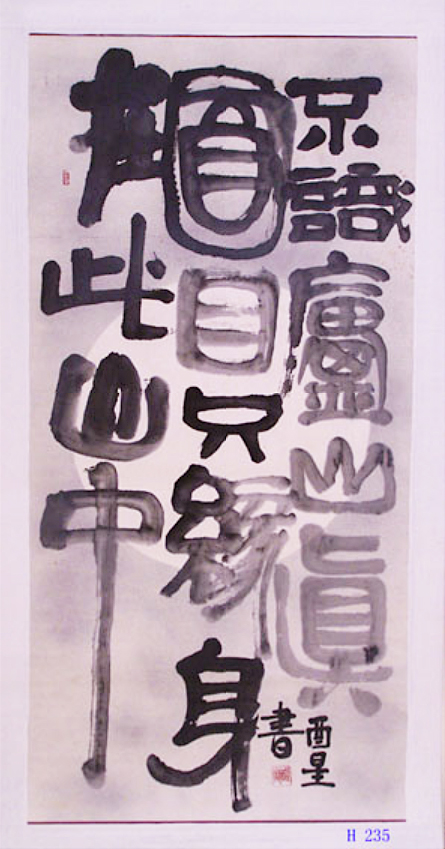 不識廬山眞
面目只緣身
在此山中
酉星
書
H 235